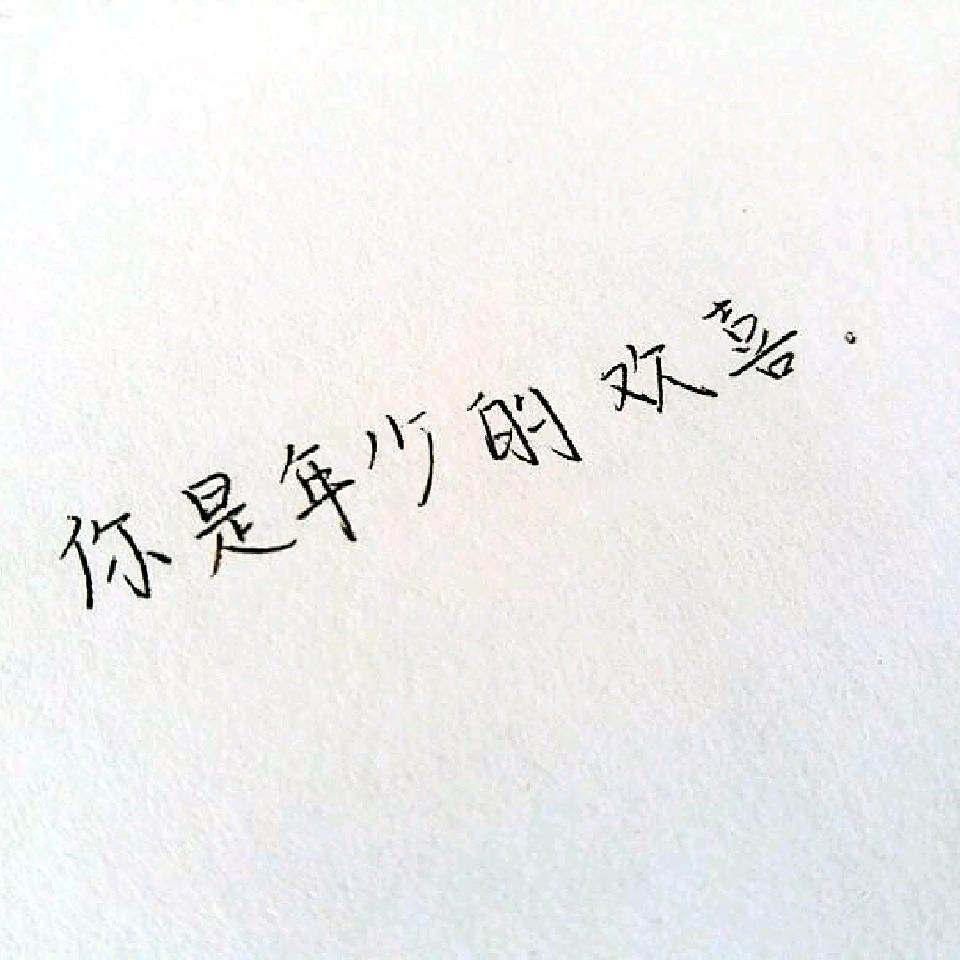 你是年少的欢喜.